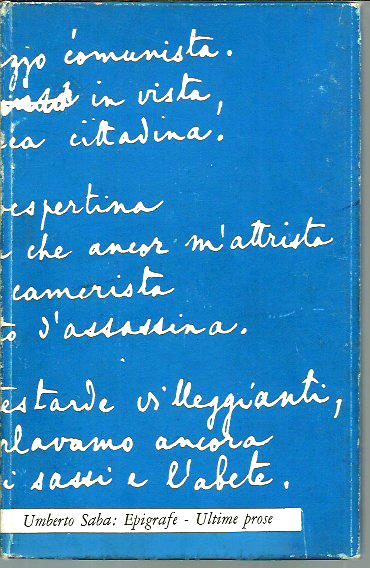 zzo comunista.
in vista,
cittadina.
vespertina
che ancor m'attrista
camerista
o d'assassina.
testarde villeggianti,
rlavamo ancora
i sassi e l'abete.
Umberto Saba: Epigrafe - Ultime prose